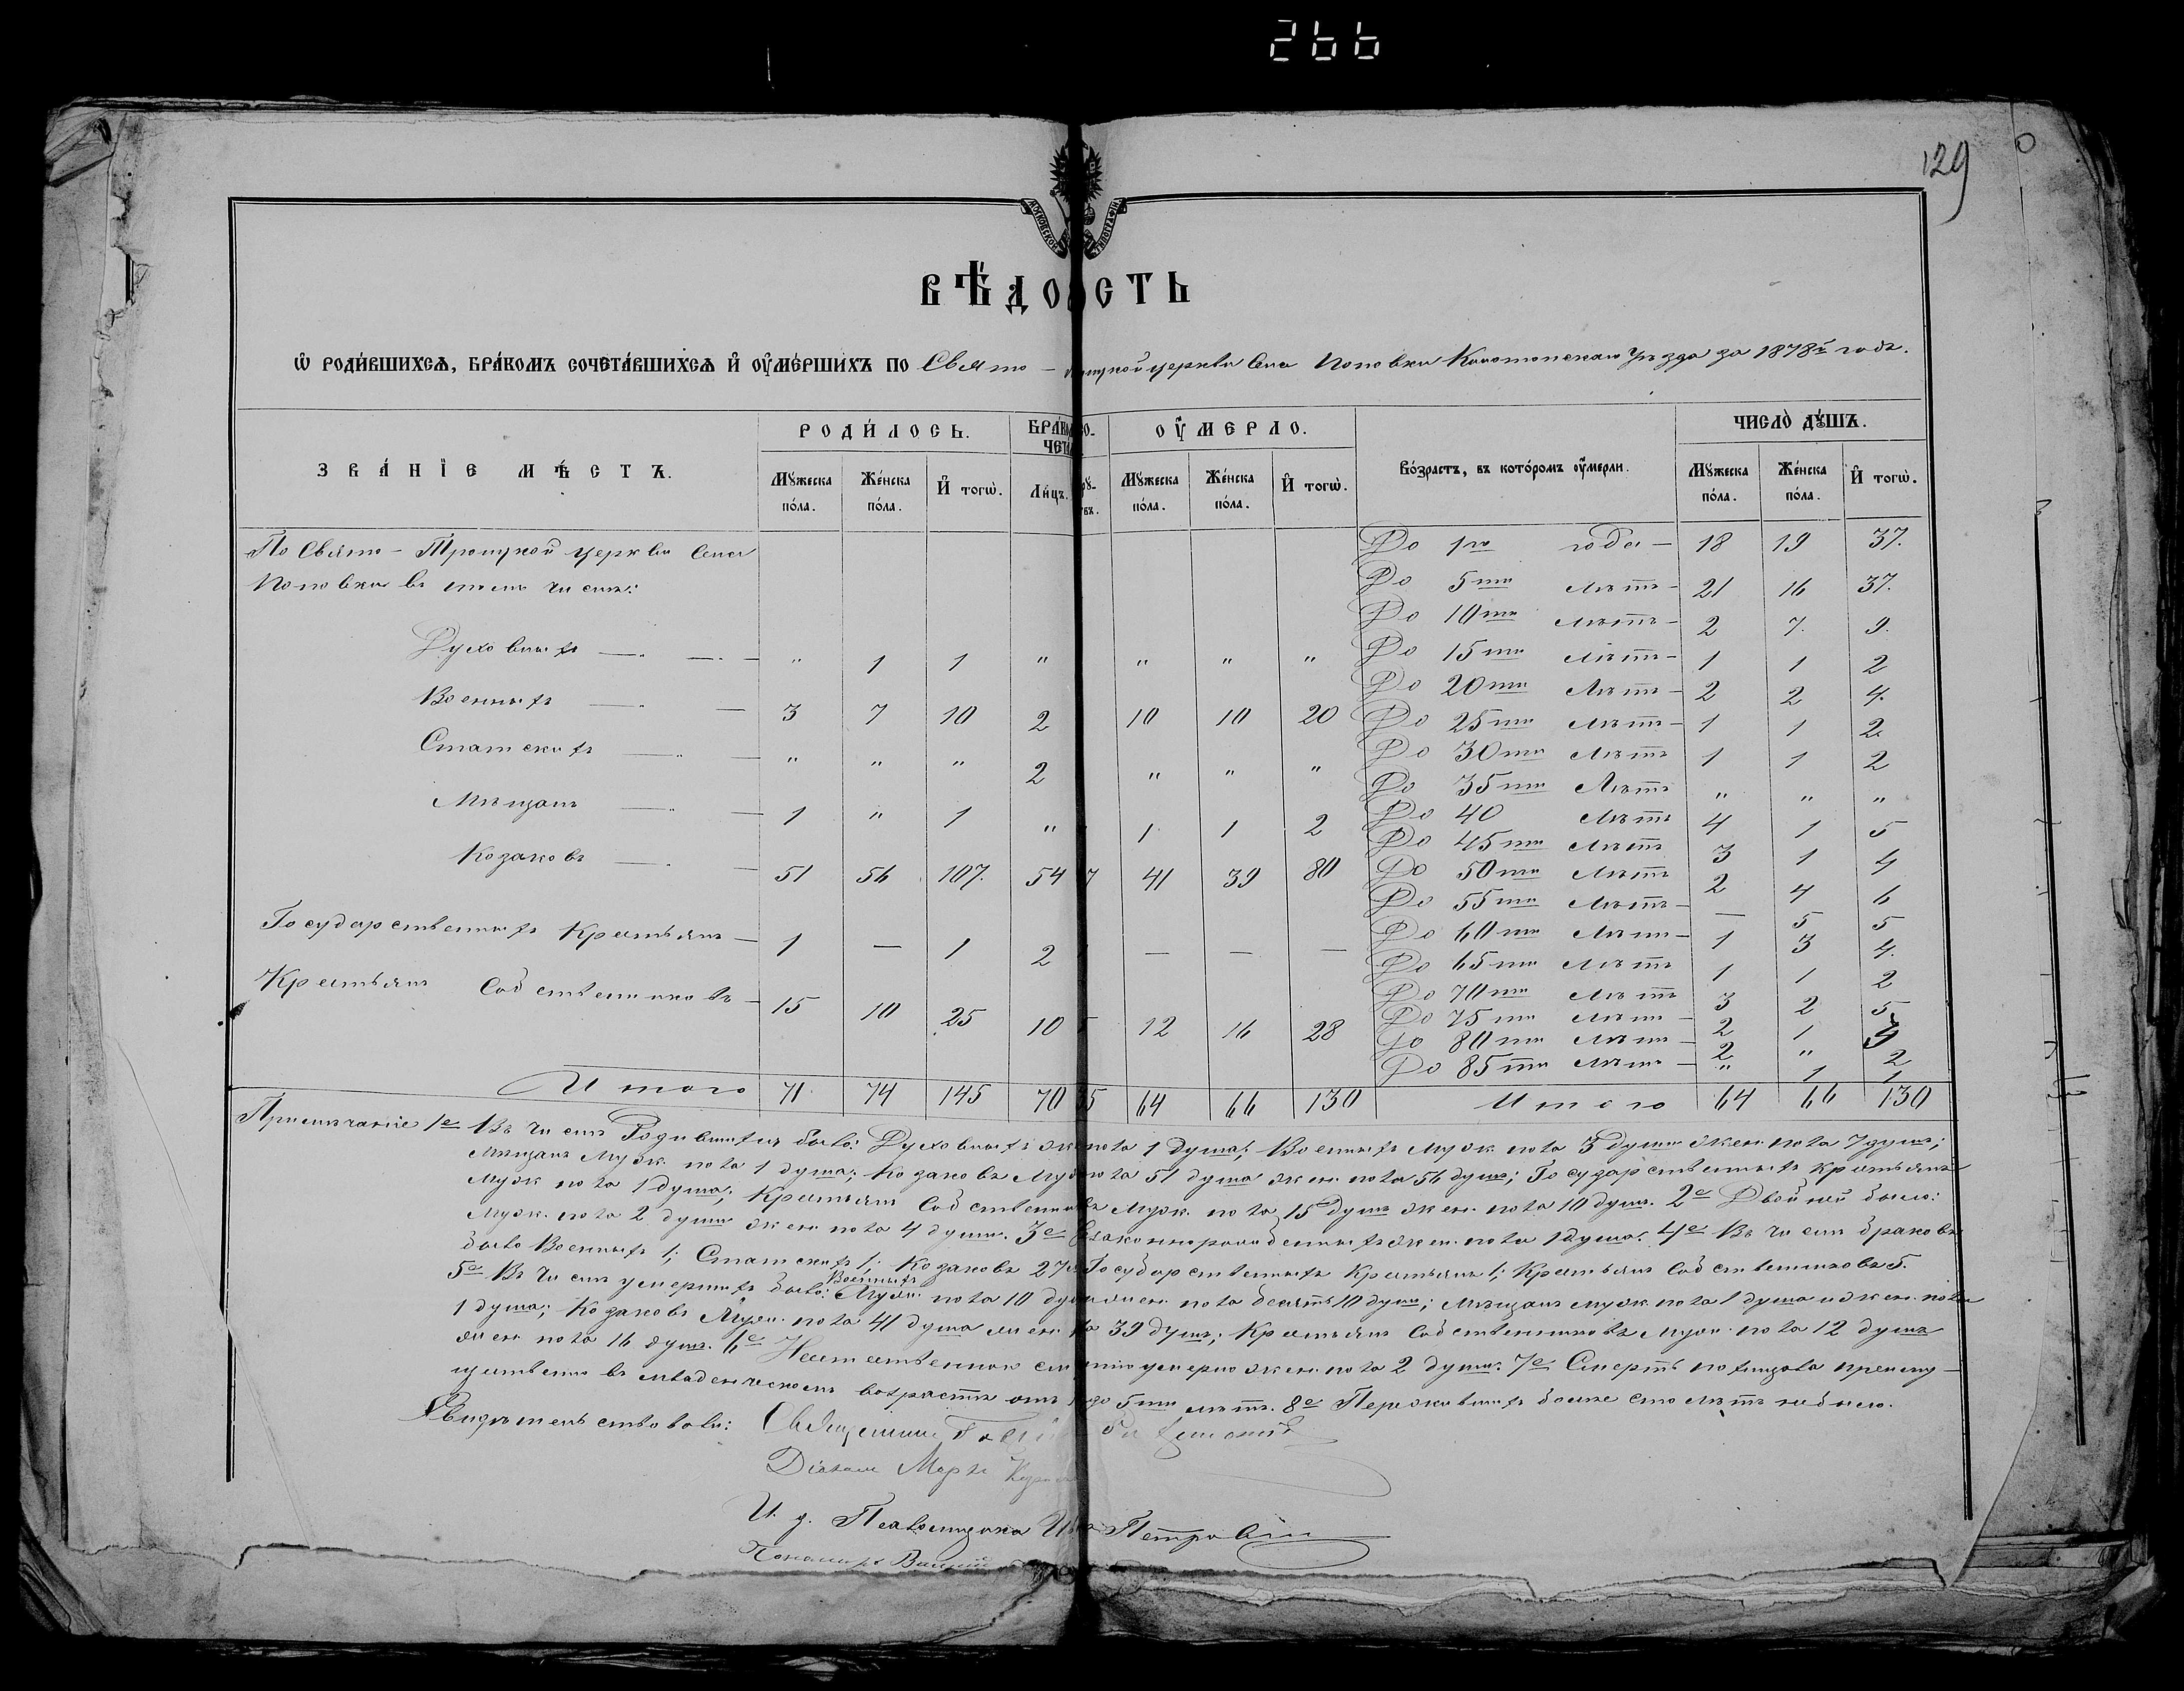 266
129
МОСКОВСКОЙ ТИПОГРАФІИ
ВѢДОСТЬ
Ѡ РОДИВШИХСѦ, БРАКОМЪ СОЧЕТАВШИХСѦ И ОУМЕРШИХЪ ПО Свято – Троицкой церкви Села Поповки Конотопскаго Уѣзда за 1878й годъ.
ЗВАНІЕ МѢСТЪ. РОДИЛОСЬ. БРАКОМ СО- ЧЕТА ОУМЕРЛО. Возрастъ, въ которомъ оумерли. ЧИСЛО ДꙊШЪ.
Мꙋжеска пола. Женска пола. И тогѡ. Лицъ. Мꙋжеска пола. Женска пола. И тогѡ. Мꙋжеска пола. Женска пола. И тогѡ.
По Свято – Троицкой церкви Села
Поповки въ томъ числѣ:
Духовныхъ — " 1 1 " " " "
Военныхъ — 3 7 10 2 10 10 20
Статскихъ — " " " 2 " " "
Мѣщанъ — 1 " 1 " 1 1 2
Козаковъ — 51 56 107. 54 27 41 39 80
Государственныхъ Крестьянъ — 1 — 1 2 — — —
Крестьянъ Собственниковъ — 15 10 25 10 5 12 16 28
Итого 71 74 145 70 35 64 66 130
До 1го года — 18 19 37.
До 5ти лѣтъ — 21 16 37.
До 10ти лѣтъ — 2 7. 9.
До 15ти лѣтъ — 1 1 2
До 20ти лѣтъ — 2 2 4.
До 25ти лѣтъ — 1 1 2
До 30ти лѣтъ 1 1 2
До 35ти лѣтъ " " "
До 40 лѣтъ 4 1 5
До 45ти лѣтъ 3 1 4
До 50ти лѣтъ 2 4 6
До 55ти лѣтъ — — 5 5
До 60ти лѣтъ — 1 3 4.
До 65ти лѣтъ 1 1 2
До 70ти лѣтъ 3 2 5
До 75ти лѣтъ — 2 1 3
До 80ти лѣтъ — 2 " 2
До 85ти лѣтъ — " 1 1
Итого 64 66 130
Примѣчаніе 1е Въ числѣ Родившихъ было: Духовныхъ жен. пола 1 душа; Военныхъ муж. пола 3 души жен. пола 7 душъ;
Мѣщанъ Муж. пола 1 душа; Козаковъ Муж. пола 51 душа жен. пола 56 душъ; Государственныхъ крестьянъ
Муж пола 1 душа; Крестьянъ Собственниковъ Муж. пола 15 душъ жен. пола 10 душъ. 2е Двойней было:
Муж. пола 2 души жен. пола 4 души. 3е Незаконнорожденныхъ жен. пола 1 душа. 4е Въ числѣ браковъ
было Военныхъ 1; Статскихъ 1; Козаковъ 27; Государственныхъ Крестьянъ 1; Крестьянъ Собственниковъ 5.
5е Въ числѣ умершихъ было: Военныхъ Муж. пола 10 душъ жен. пола десять 10 душъ; Мѣщанъ муж. пола 1 душа и жен. пола
1 душа; Козаковъ Муж. пола 41 душа жен. пола 39 душъ; Крестьянъ Собственниковъ Муж. пола 12 душъ
жен. пола 16 душъ. 6е Неестественною смертію умерло жен. пола 2 души. 7е Смерть похищала преиму-
щественно въ младенческомъ возрастѣ отъ 1 до 5ти лѣтъ. 8е Пережившихъ болѣе сто лѣтъ не было.
Свидѣтельствовали: Священникъ
Діаконъ Маркъ
И. д. Псаломщика Иванъ Петровскій
Пономарь Василій